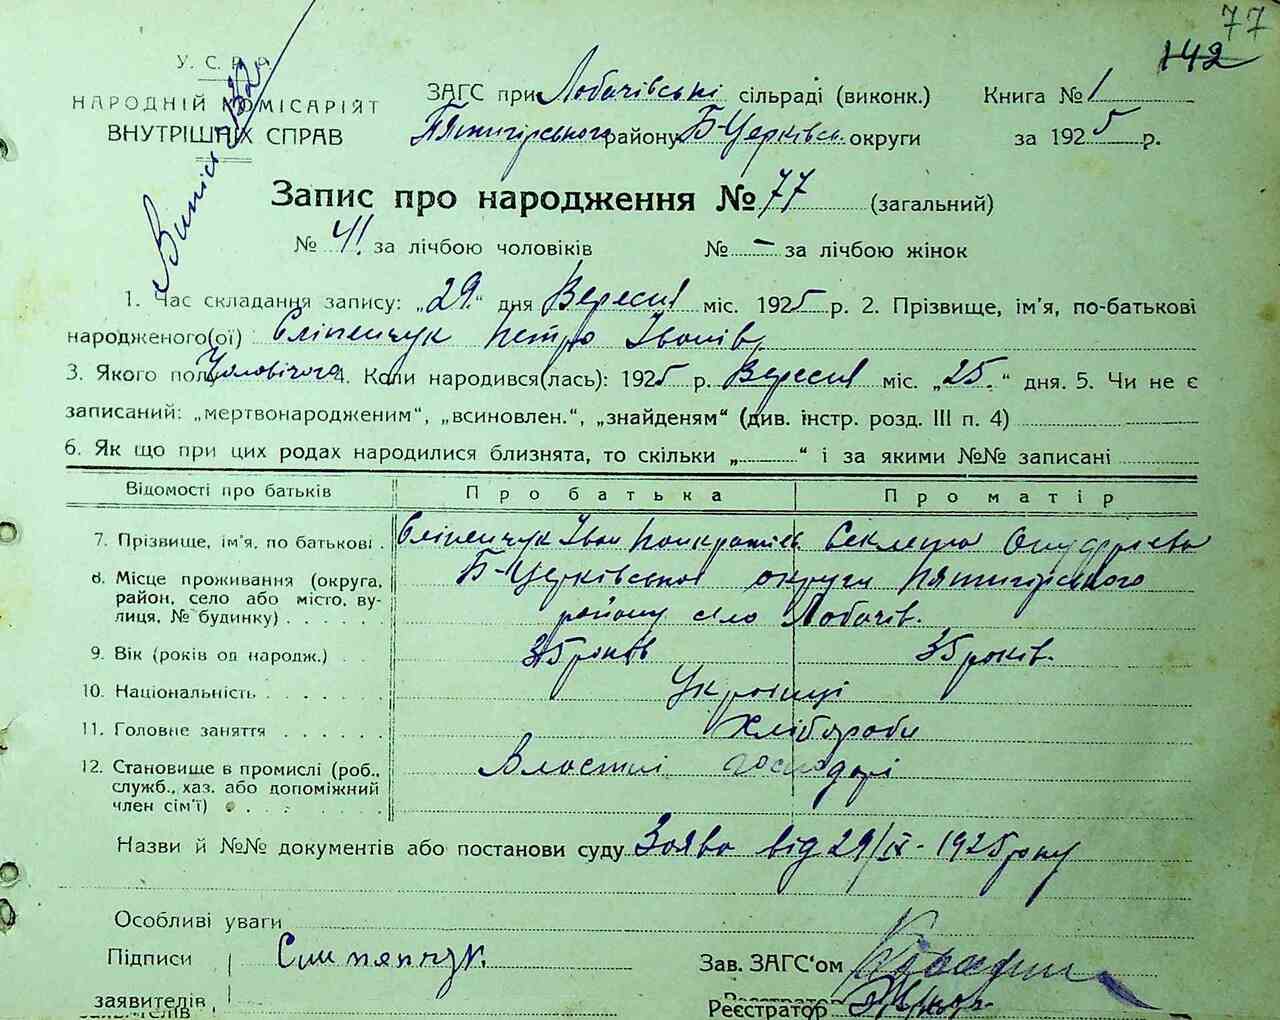 77
142
У. С. Р. Р.
НАРОДНІЙ КОМІСАРІЯТ
ВНУТРІШНІХ СПРАВ
ЗАГС при Лобачівські сільраді (виконк.) Книга № 1
Пятигірського району Б-Церківськ округи за 1925 р.
Запис про народження № 77 (загальний)
№ 41. за лічбою чоловіків № – за лічбою жінок
1. Час складання запису: „29“ дня Вересня міс. 1925 р. 2. Прізвище, ім'я, по-батькові
народженого(ої) Сліпенчук Петро Іванів
3. Якого полу Чоловічого 4. Коли народився(лась): 1925 р. Вересня міс. „25.“ дня. 5. Чи не є
записаний: „мертвонародженим“, „всиновлен.“, „знайденям“ (див. інстр. розд. III п. 4)
6. Як що при цих родах народилися близнята, то скільки „ “ і за якими №№ записані
Відомості про батьків Про батька Про матір
7. Прізвище, ім'я, по батькові Сліпенчук Іван Панкратів Секлета Ондріева
8. Місце проживання (округа, район, село або місто, вулиця, № будинку) Б-Церківської округи Пятигірського
району село Лобачів.
9. Вік (років од народж.) 35 років 35 років.
10. Національність Українці
11. Головне заняття Хлібороби
12. Становище в промислі (роб., служб., хаз. або допоміжний член сім'ї) Властні господарі
Назви й №№ документів або постанови суду Заява від 29/IX - 1925 року
Особливі уваги
Підписи
заявителів
Зав. ЗАГС'ом
Реєстратор